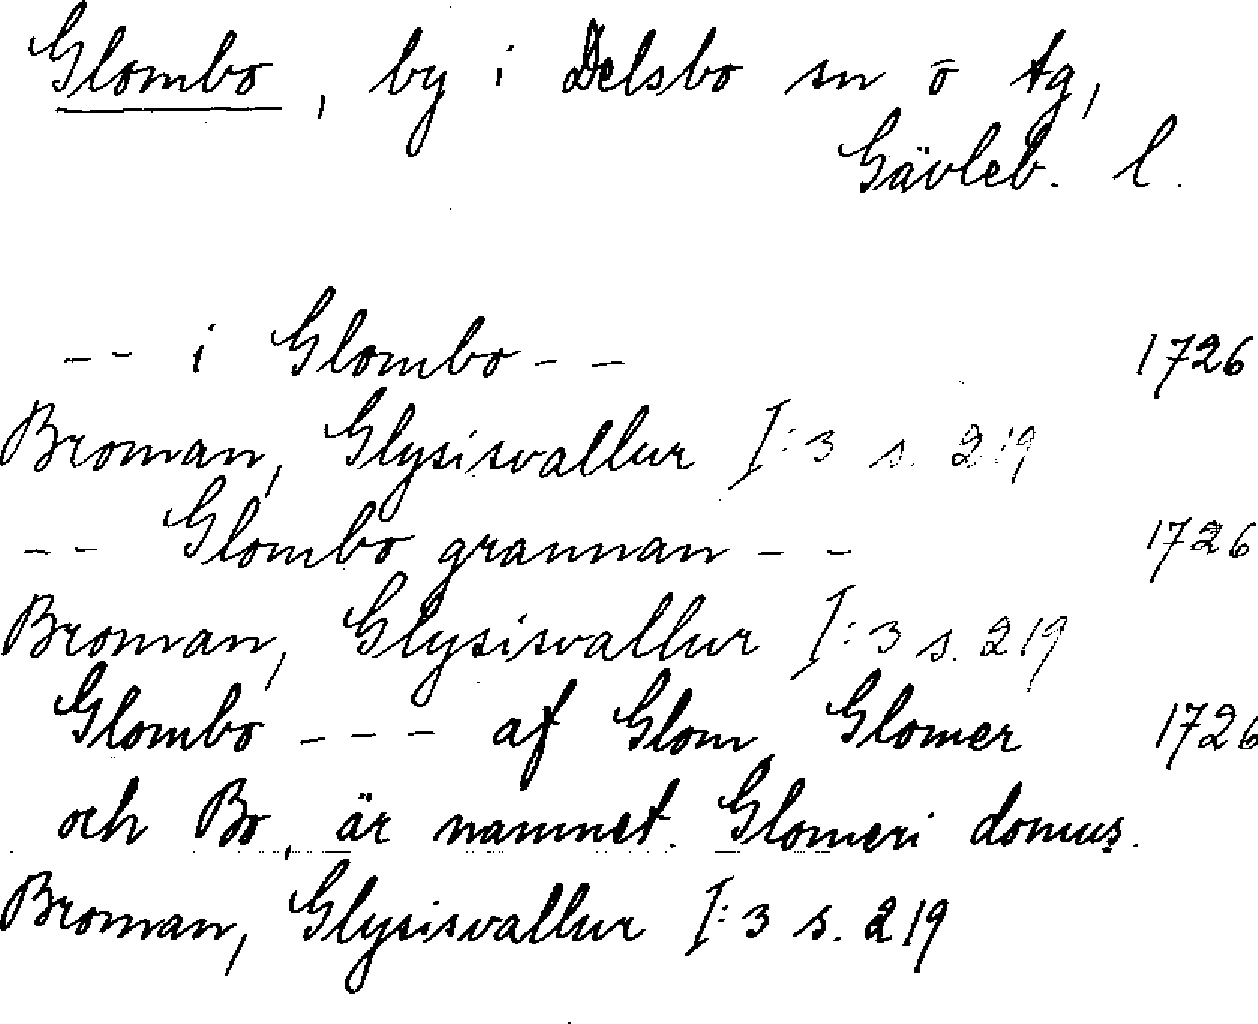 Glombo, by i Delsbo sn o tg,
Gävleb. l.
-- i Glombo -- 1726
Broman, Glysisvallur I:3 s. 219
-- Glombo grannan -- 1726
Broman, Glysisvallur I:3 s. 219
Glombo --- af Glom, Glomer 1726
och Bo, är namnet. Glomeri domus.
Broman, Glysisvallur I:3 s. 219